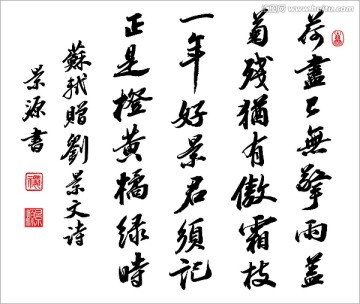 荷盡已無擎雨盖
菊残猶有傲霜枝
一年好景君須記
正是橙黄橘緑時
蘇軾贈劉景文詩
景源書